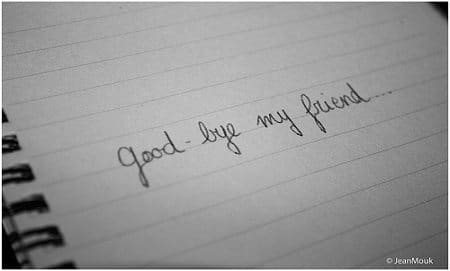 good-bye my friend....
© JeanMouk